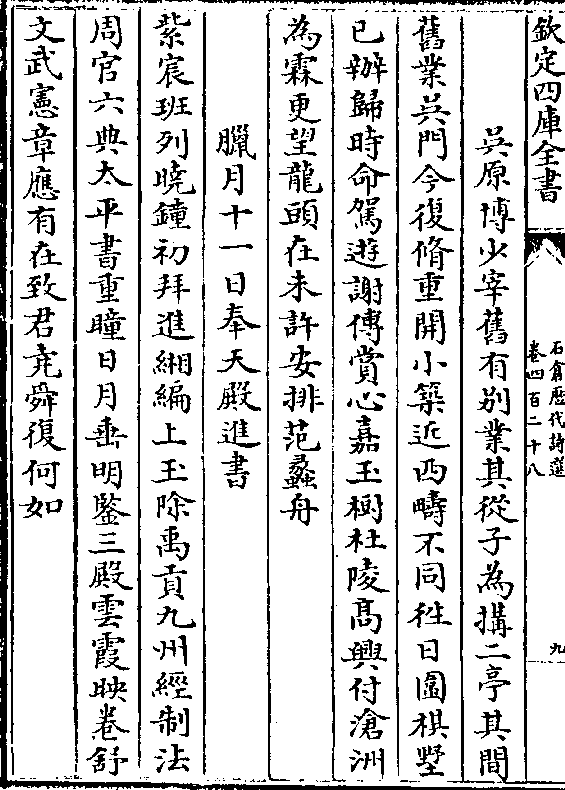 欽定四庫全書
石倉歷代詩選
卷四百二十八
九
吳原博少宰舊有別業其從子為搆二亭其間
舊業吳門今復脩重開小築近西疇不同徃日圍棋墅
已辦歸時命駕遊謝傅賞心嘉玉樹杜陵髙興付滄洲
為霖更望龍頭在未許安排范蠡舟
臘月十一日奉天殿進書
紫宸班列曉鐘初拜進緗編上玉除禹貢九州經制法
周官六典太平書重瞳日月垂明鍳三殿雲霞映卷舒
文武憲章應有在致君堯舜復何如